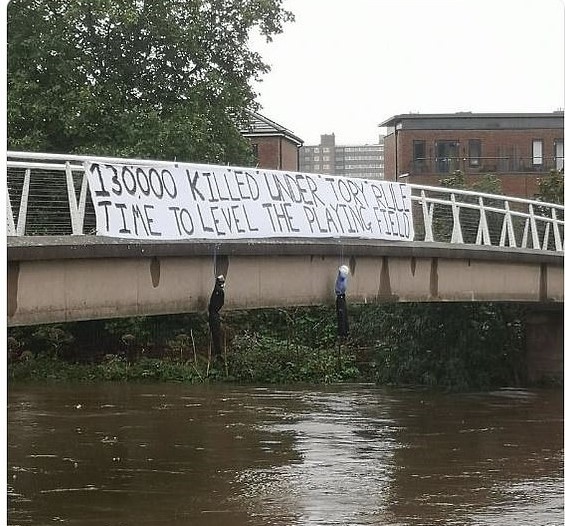 130000 KILLED UNDER TORY RULE
TIME TO LEVEL THE PLAYING FIELD